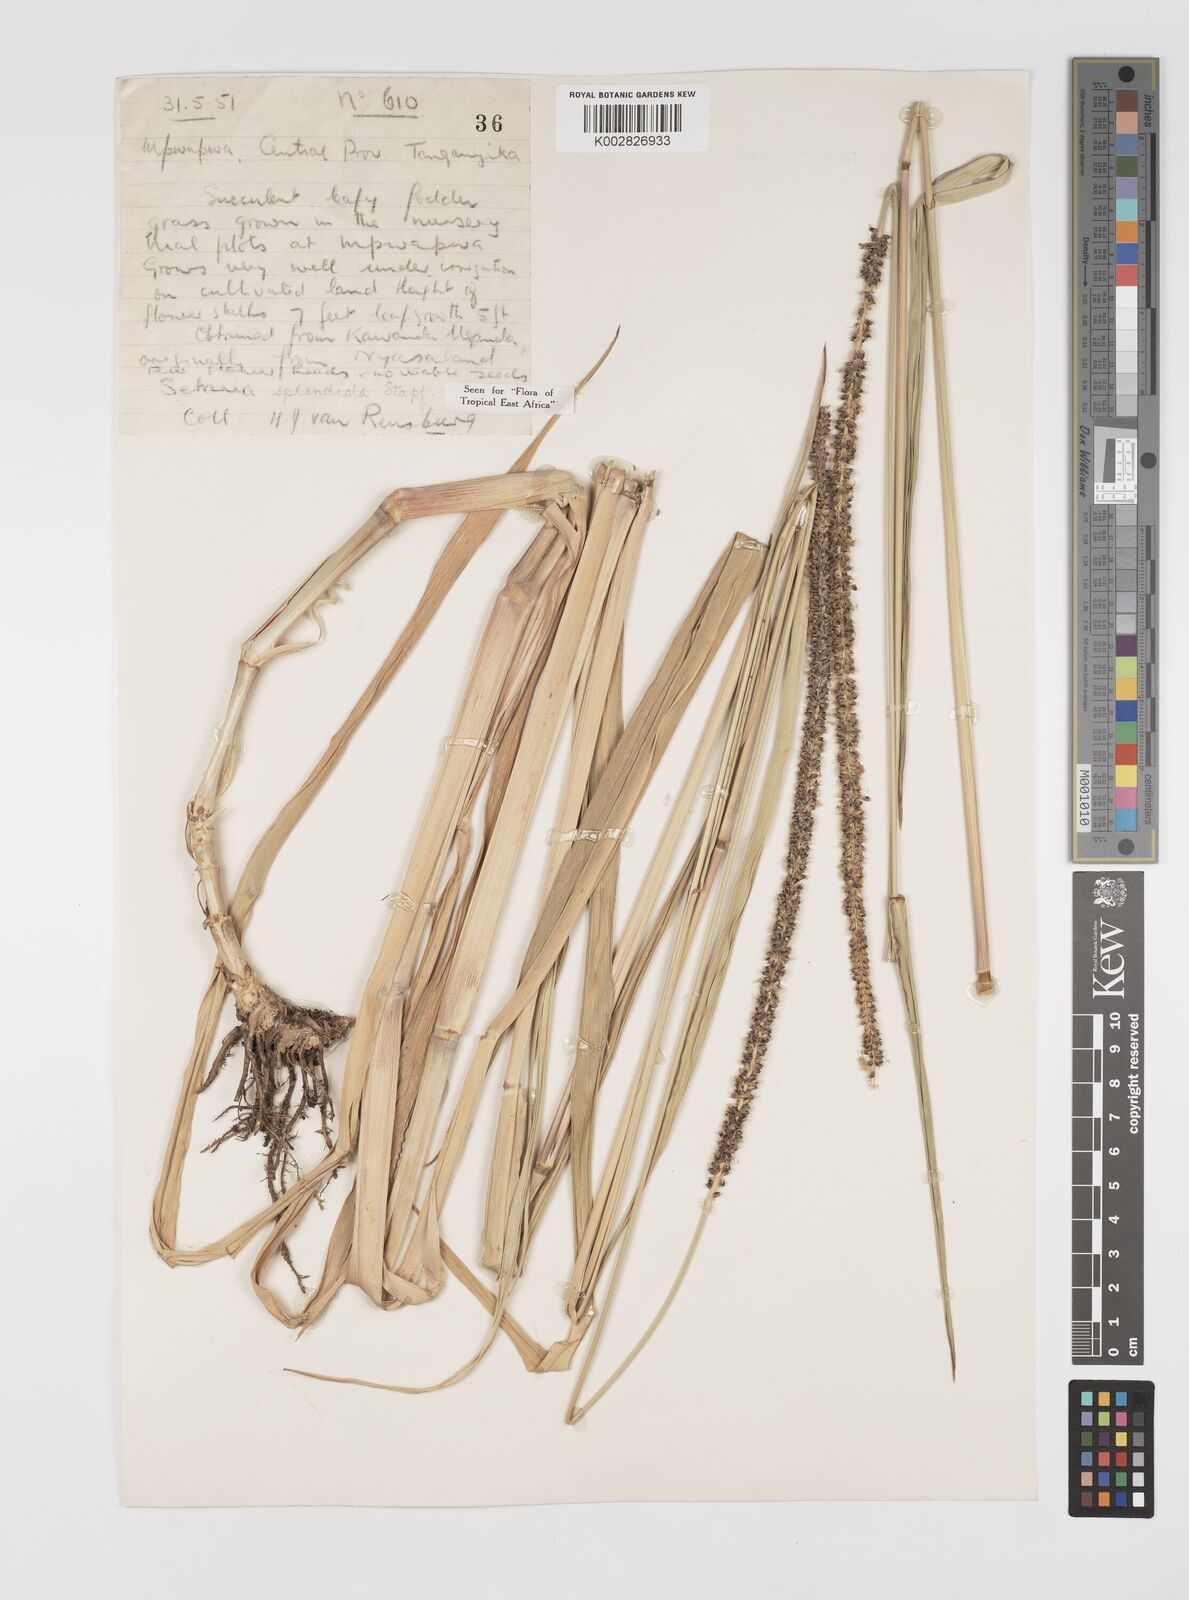 31.5.51 No 610
36
Mpwapwa, Central Prov Tanganyika
Succulent leafy fodder
grass grown in the nursery
trial plots at Mpwapwa
Grows very well under irrigation
on cultivated land Height of
flower stalks 7 feet leaf growth 5 ft
Obtained from Kawanda Uganda,
originally from Nyasaland
flower heads no viable seeds
Setaria splendida Stapf.
Coll H J van Rensburg
Seen for "Flora of
Tropical East Africa"
ROYAL BOTANIC GARDENS KEW
K002826933
inches
centimeters
Don Williams
M001010
Royal Botanic Gardens
Kew
10
9
8
7
6
5
4
3
2
1
0
cm
copyright reserved